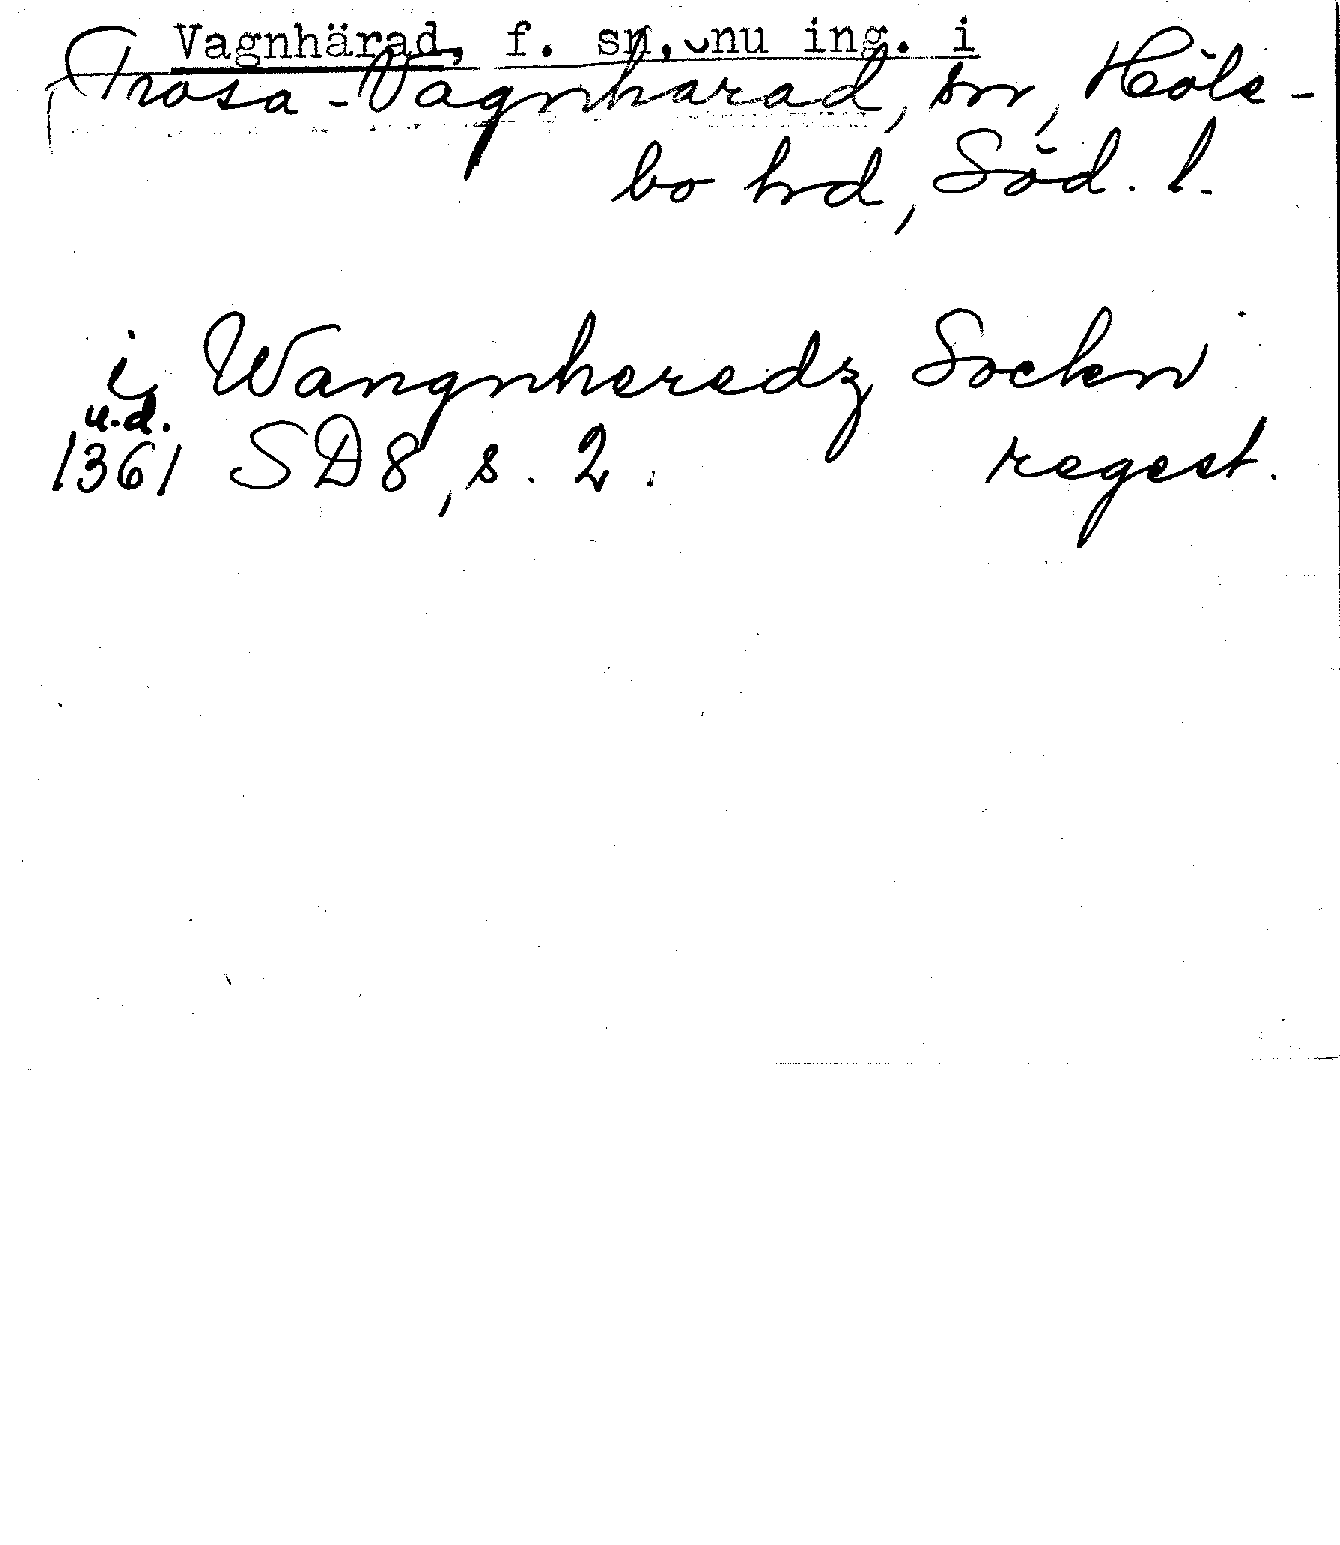 Vagnhärad, f. sn, nu ing. i
Trosa-Vagnhärad, sn, Höle-
bo hd, Söd. l.
i Wangnheredz Sockn
u.d.
1361 SD 8, s. 2. regest.